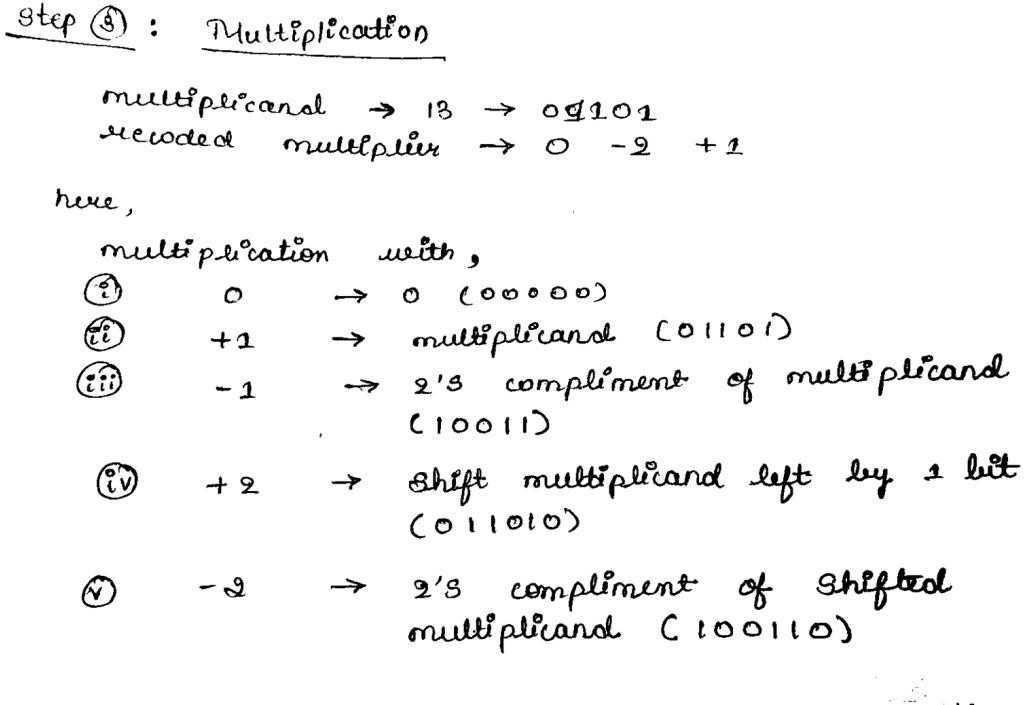 Step ③ : Multiplication
multiplicand → 13 → 01101
recoded multiplier → 0 -2 +1
here,
multiplication with,
(i) 0 → 0 (00000)
(ii) +1 → multiplicand (01101)
(iii) -1 → 2's compliment of multiplicand
(10011)
(iv) +2 → Shift multiplicand left by 1 bit
(011010)
(v) -2 → 2's compliment of Shifted
multiplicand (100110)